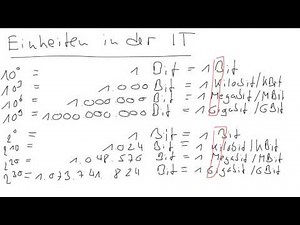 Einheiten in der IT
10⁰ = 1 Bit = 1 Bit
10³ = 1000 Bit = 1 Kilobit/KBit
10⁶ = 1000.000 Bit = 1 Megabit/MBit
10⁹ = 1000.000.000 Bit = 1 Gigabit/GBit
2⁰ = 1 Bit = 1 Bit
2¹⁰ = 1024 Bit = 1 Kilobit/KBit
2²⁰ = 1.048.576 Bit = 1 Megabit/MBit
2³⁰ = 1.073.741.824 Bit = 1 Gigabit/GBit